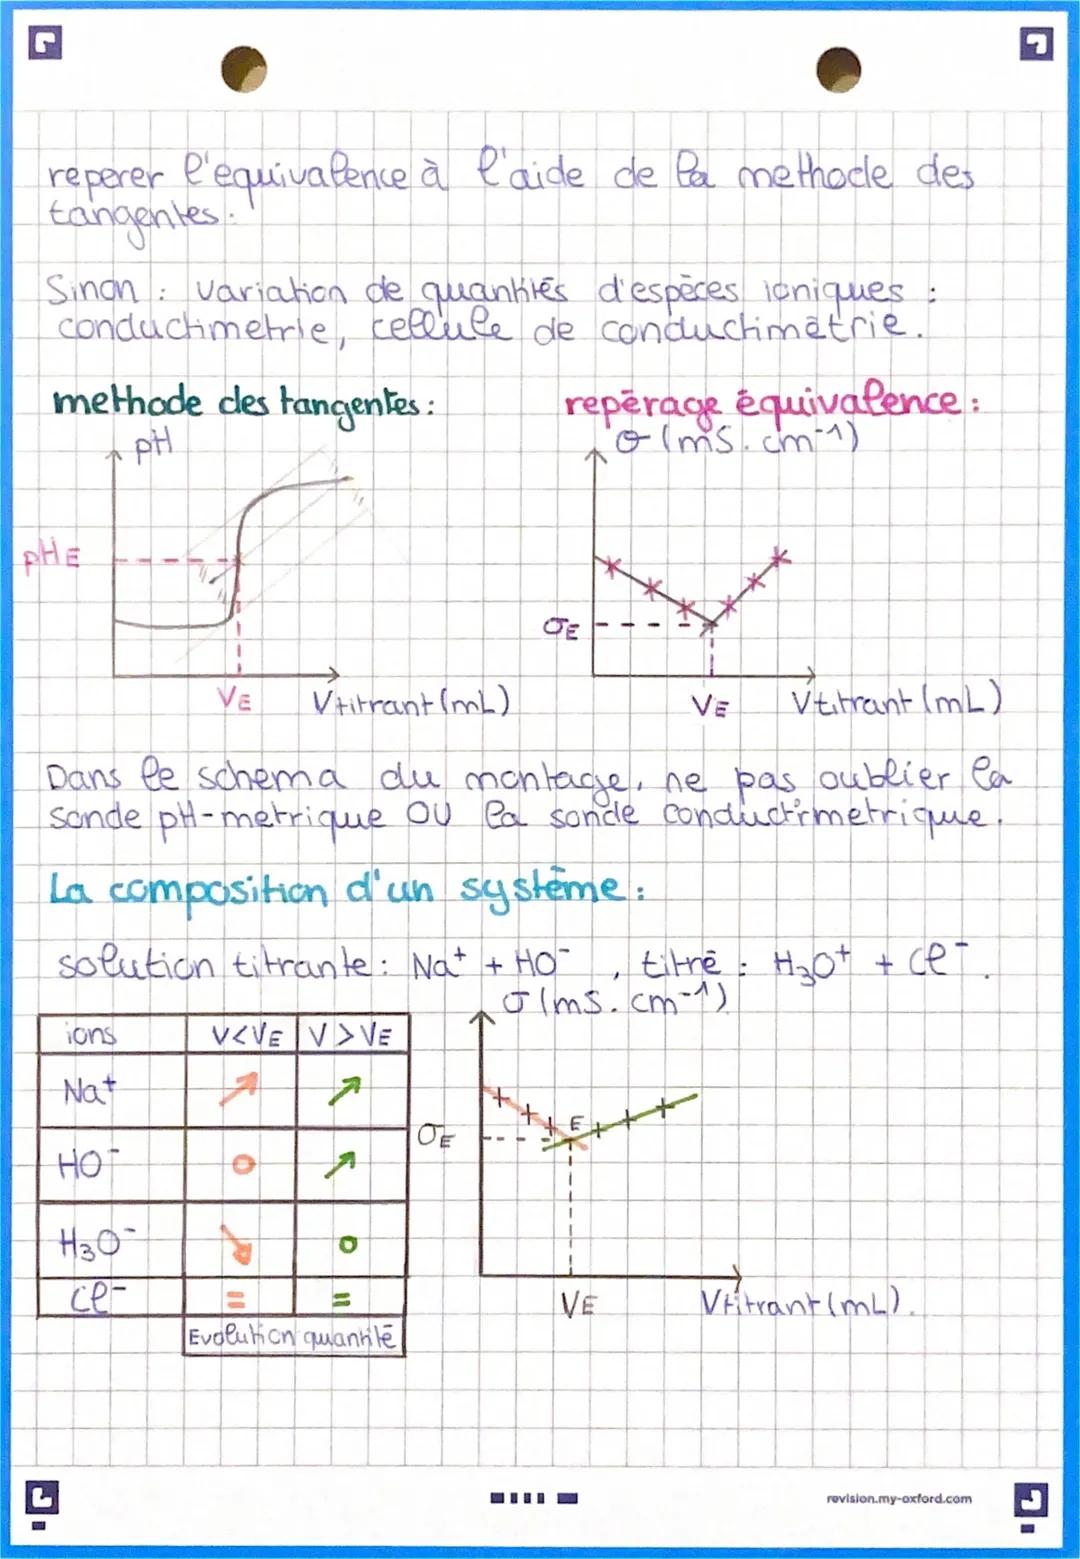 reperer l'equivalence à l'aide de la methode des
tangentes.
Sinon : variation de quantités d'espèces ioniques :
conductimetrie, cellule de conductimétrie.
methode des tangentes :
repérage équivalence :
pH
σ (mS. cm⁻¹)
pHE
σE
VE
Vtitrant (mL)
VE
Vtitrant (mL)
Dans le schema du montage, ne pas oublier la
sonde pH-metrique OU la sonde conductirmetrique.
La composition d'un système :
solution titrante : Na⁺ + HO⁻ , titré : H₃O⁺ + Cl⁻ .
σ (mS. cm⁻¹)
ions V<VE V>VE
Na⁺ ↗ ↗
HO⁻ o ↗
H₃O⁻ ↘ o
Cl⁻ = =
Evolution quantité
σE
E
VE
Vtitrant (mL).
revision.my-oxford.com